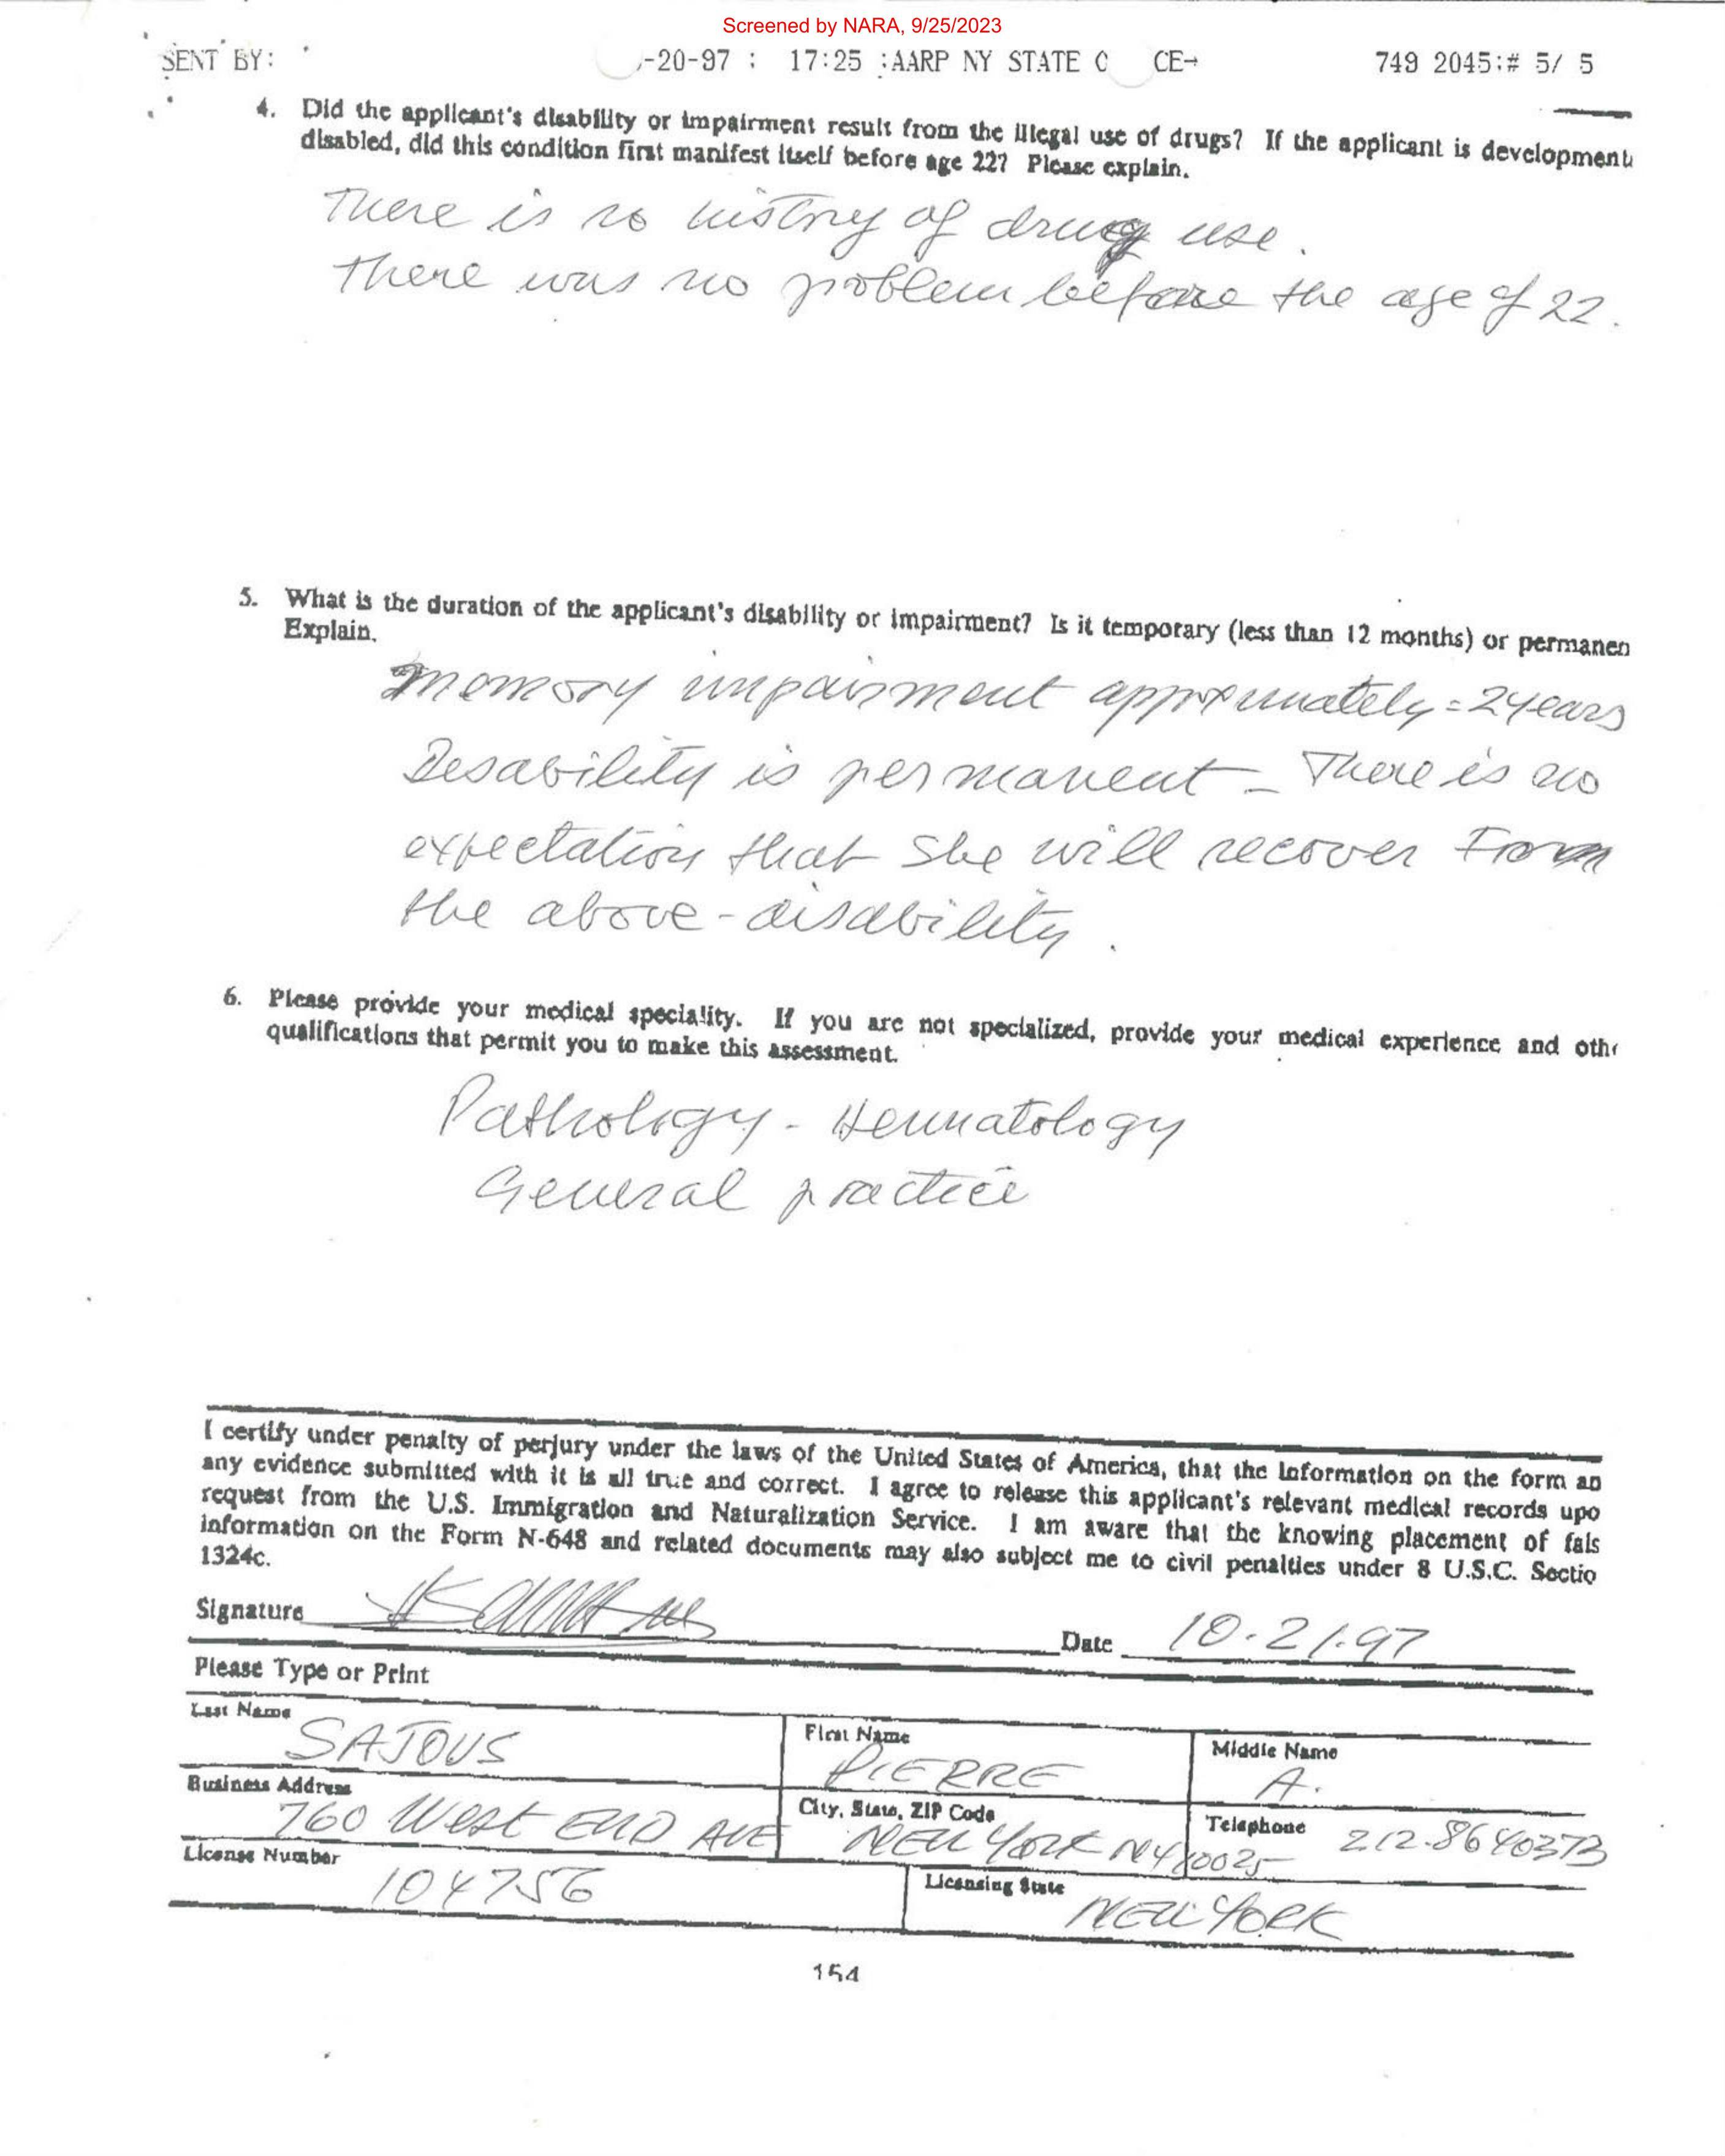 Screened by NARA, 9/25/2023
SENT BY: -20-97 ; 17:25 ;AARP NY STATE O CE→ 749 2045:# 5/ 5
4. Did the applicant's disability or impairment result from the illegal use of drugs? If the applicant is development
disabled, did this condition first manifest itself before age 22? Please explain.
There is no history of drug use.
There was no problem before the age of 22.
5. What is the duration of the applicant's disability or impairment? Is it temporary (less than 12 months) or permanen
Explain.
memory impairment approximately = 2 years
Desability is permanent - There is no
expectation that she will recover From
the above-disability.
6. Please provide your medical speciality. If you are not specialized, provide your medical experience and othe
qualifications that permit you to make this assessment.
Pathology - Hematology
General practice
I certify under penalty of perjury under the laws of the United States of America, that the information on the form an
any evidence submitted with it is all true and correct. I agree to release this applicant's relevant medical records upo
request from the U.S. Immigration and Naturalization Service. I am aware that the knowing placement of fals
information on the Form N-648 and related documents may also subject me to civil penalties under 8 U.S.C. Sectio
1324c.
Signature Date 10.21.97
Please Type or Print
Last Name SAJOUS First Name PIERRE Middle Name A.
Business Address 760 West END AVE City, State, ZIP Code NEW YORK NY 10025 Telephone 212.8640373
License Number 104756 Licensing State NEW YORK
154